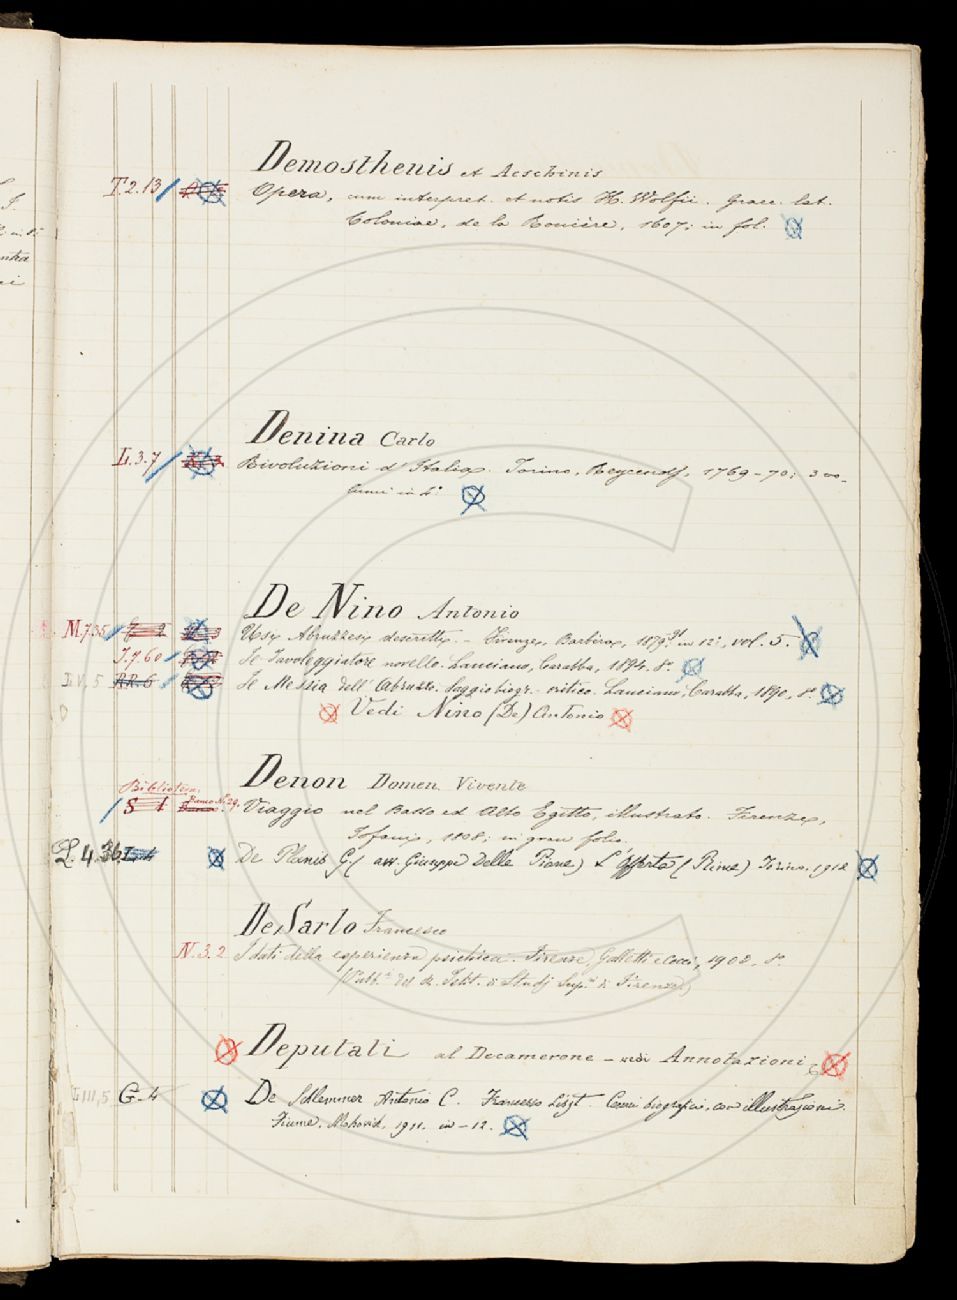 Demosthenis et Aeschinis
T.2.13
Opera, cum interpret. et notis H. Wolfii. Graec. lat.
Coloniae, de la Rouière, 1607; in fol.
Denina Carlo
L.3.7
Rivoluzioni d'Italia. Torino, Reycends, 1769-70; 3 vo-
lumi in 4°
De Nino Antonio
M.7.35
Usi Abruzzesi descritti. - Firenze, Barbèra, 1879 in 12°, vol. 5.
I.7.60
Il Favoleggiatore novello. Lanciano, Carabba, 1894. 8°.
RR.6
Il Messia dell'Abruzzo. Saggio biogr.-critico. Lanciano, Carabba, 1890, 8°
Vedi Nino (De) Antonio
Denon Domen. Vivente
Biblioteca
S 1
Viaggio nel Basso ed Alto Egitto, illustrato. Firenze,
Tofani, 1808; in gran folio.
L.4.36
De Planis G. (avv. Giuseppe Delle Piane) L'Offerta (Rime) Torino. 1912
De Sarlo Francesco
N.3.2
I dati della esperienza psichica. Firenze, Galletti e Cocci, 1903, 8°
(Pubb. del R. Istit. di Studj Sup. di Firenze)
Deputati al Decamerone - vedi Annotazioni
G-4
De Schlemmer Antonio C. Francesco Liszt. Cenni biografici, con illustrazioni.
Fiume, Mohovich, 1911. in-12.